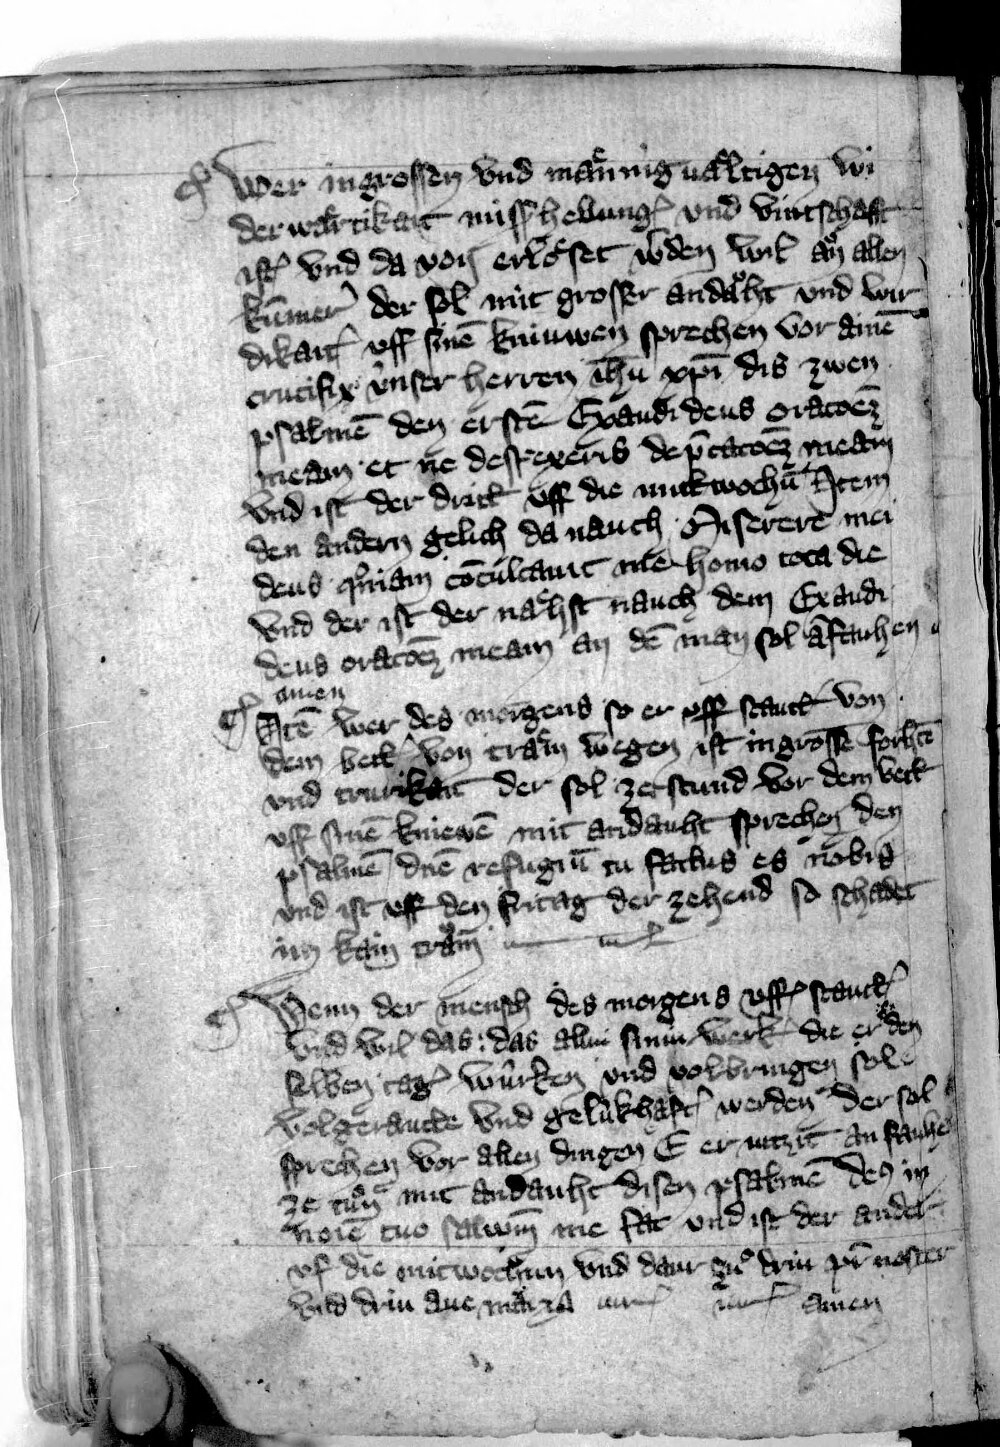 Wer in grossen vnd mañnigualtigen wi
derwärtikait misshellung vnd vintschafft
ist vnd da von erlöset wden wil an allen
kūmer der sol mit grosser andaͧht vnd wir
dikait vff sinē kniuwen sprechen vor ainē
crucifix vnser herren ihū xpī dis zwen
psalmē den erstē Exaudi deus oracōēz
meam et ne despexeris dep̄cacōēz meam
Vnd ist der dritt vff die mitkwochū Item
den andern gelich da nauch Miserere mei
deus qm̄iam cōculcauit me homo tota die
Vnd der ist der nähst nauch dem Exaudi
deus oracōēz meam an dē man sol āfauhen
amen
Itē wer des morgens so er vff staut von
dem bett von träm wegen ist in grossē forhtē
vnd trurikait der sol zetstund vor dem bett
vff sinē kniewē mit andauht sprechen den
psalmē dnē refugiū tu factus es nobis
vnd ist vff den fritag der zehend so schadet
im kain träm
Wenn der mensch des morgens vff staut
Vnd wil das : das alliu siniu werk die er den
selben tag würken vnd volbringen sol
Volgerautte vnd gelükhaft werden der sol
sprechen vor allen dingen E er ützit an fauhe
ze tün mit andauht disen psalmē de9 in
noīe tuo saluum me fac vnd ist der ander
vf die mitwochun vnd dar zuͦ driu pr̄ noster
vnd driu aue maria amen